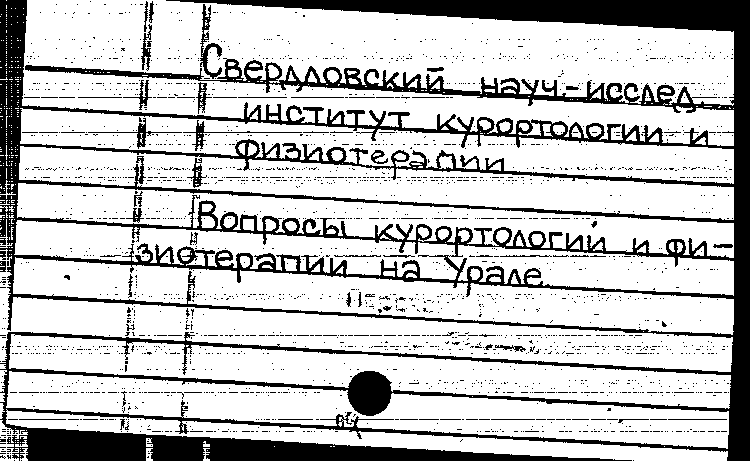 Свердловский науч.-исслед.
институт курортологии и
физиотерапии
Вопросы курортологии и фи-
зиотерапии на Урале